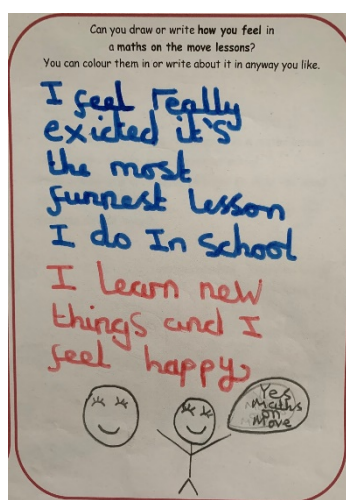 Can you draw or write how you feel in
a maths on the move lessons?
You can colour them in or write about it in anyway you like.
I feel really
exicted it's
the most
funnest lesson
I do In school
I learn new
things and I
feel happy
Yes
Maths
on
Move